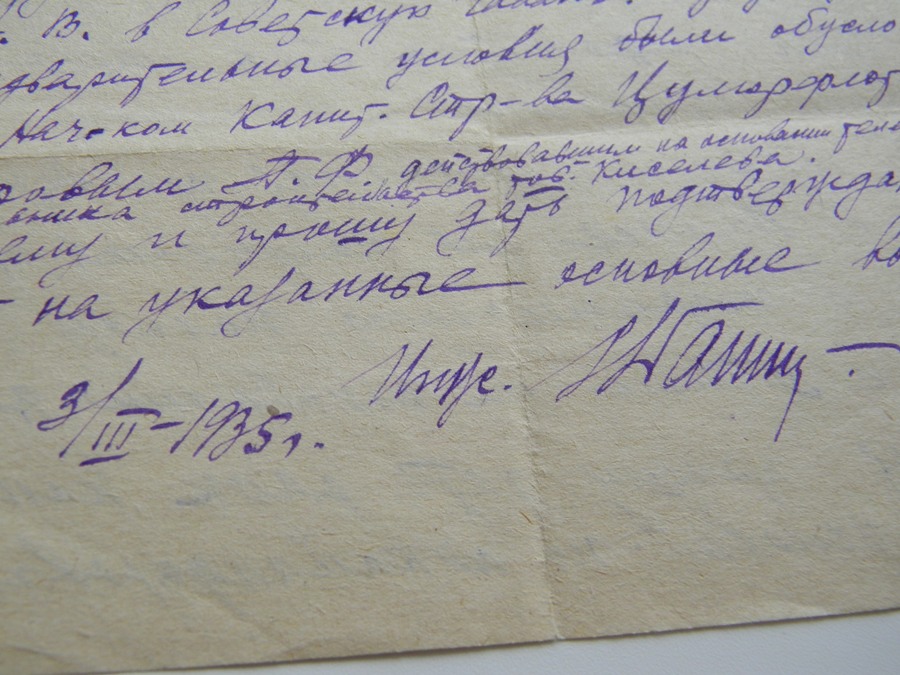 . В. в Советскую
дварительные условия были обусло
Нач-ком Капит. Стр-ва
ровым А. Ф. действовавшим на основании теле
вника строительства тов. Киселева.
ему и прошу дать подтвержда
на указанные основные
Инж.
3/III-1935г.